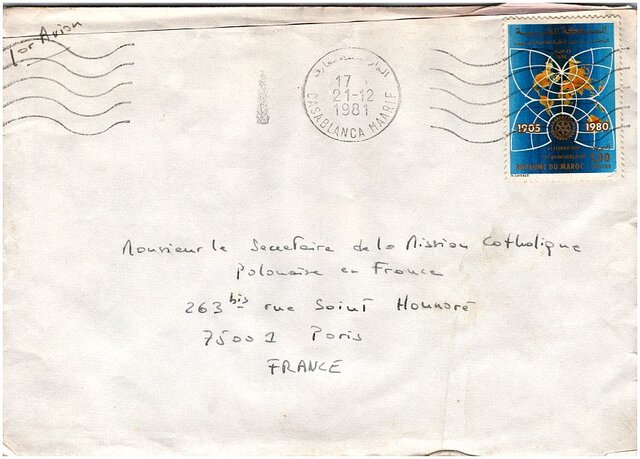 Par Avion
الدار البيضاء معاريف
17
21-12
1981
CASABLANCA MAARIF
المملكة المغربية
1905 1980
ROYAUME DU MAROC
Monsieur le Secretaire de la Mission Catholique
Polonaise en France
263 bis rue Saint Honnoré
75001 Paris
FRANCE